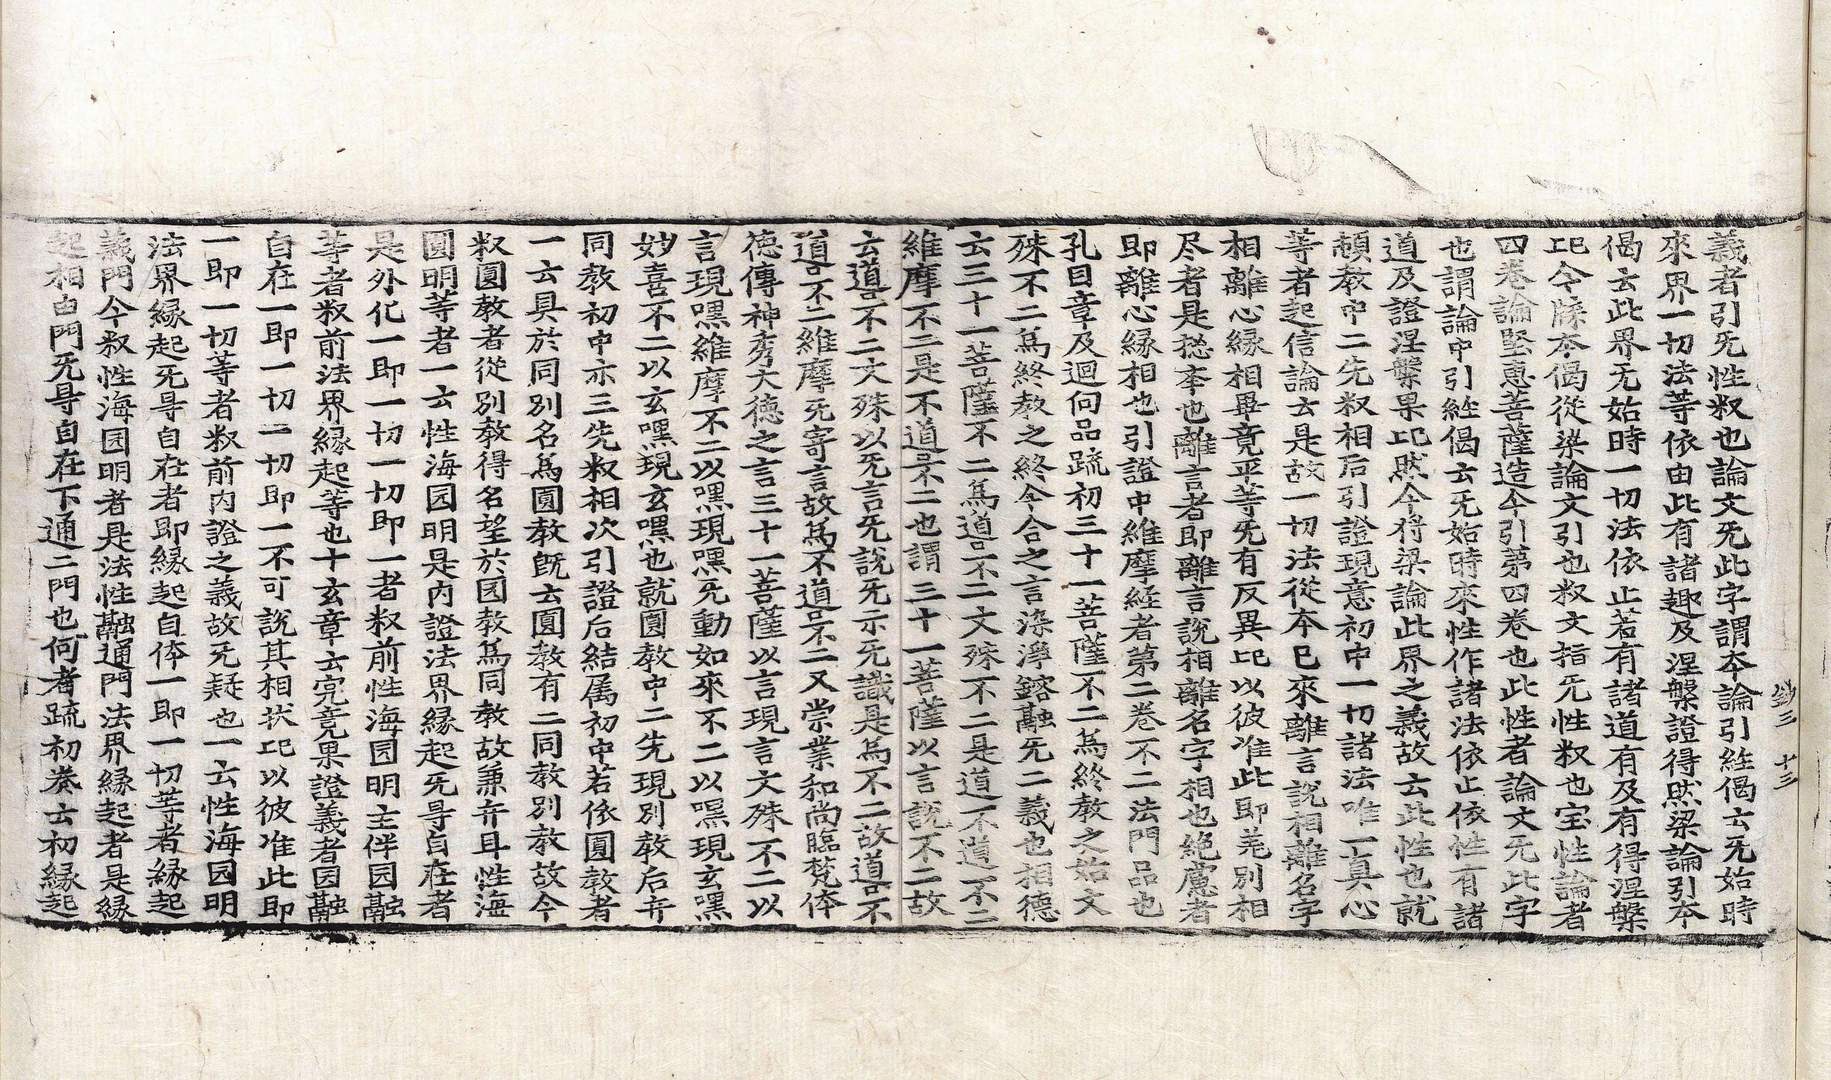 義者引旡性釈也論文旡此字謂本論引経偈云旡始時
來界一切法等依由此有諸趣及涅槃證得然梁論引本
偈云此界无始時一切法依止若有諸道有及有得涅槃
比今牒本偈從梁論文引也釈文指旡性釈也宝性論者
四巻論堅恵菩薩造今引第四巻也此性者論文旡此字
也謂論中引経偈云旡始時來性作諸法依止依性有諸
道及證涅槃果比然今将梁論此界之義故云此性也就
頓教中二先釈相后引證現意初中一切諸法唯一真心
等者起信論云是故一切法從本已來離言說相離名字
相離心縁相畢竟平等旡有反異比以彼准此即羌別相
尽者是捴本也離言者即離言說相離名字相也絕慮者
即離心縁相也引證中維摩経者第二巻不二法門品也
孔目章及迴向品疏初三十一菩薩不二為終教之始文
殊不二為終教之終今合之言染淨鎔融旡二義也相德
云三十一菩薩不二為道言不二文殊不二是道不道不二
維摩不二是不道言不二也謂三十一菩薩以言說不二故
云道言不二文殊以旡言旡說旡示旡識是為不二故道言不
道言不二維摩旡寄言故為不道言不二又崇業和尚臨梵侔
德傳神秀大德之言三十一菩薩以言現言文殊不二以
言現嘿維摩不二以嘿現嘿旡動如來不二以嘿現玄嘿
妙喜不二以玄嘿現玄嘿也就圓教中二先現別教后弁
同教初中亦三先釈相次引證后結属初中若依圓教者
一云具於同別名為圓教既云圓教有二同教別教故今
釈圓教者從別教得名望於圓教為同教故兼弁耳性海
圓明等者一云性海园明是內證法界縁起旡㝵自在者
是外化一即一切一切即一者釈前性海园明主伴园融
等者釈前法界縁起等也十玄章云究竟果證義者园融
自在一即一切一切即一不可說其相状比以彼准此即
一即一切等者釈前內證之義故旡疑也一云性海园明
法界縁起旡㝵自在者即縁起自侔一即一切等者縁起
義門今釈性海园明者是法性融通門法界縁起者是縁
起相由門旡㝵自在下通二門也何者疏初巻云初縁起
鈔三 十三